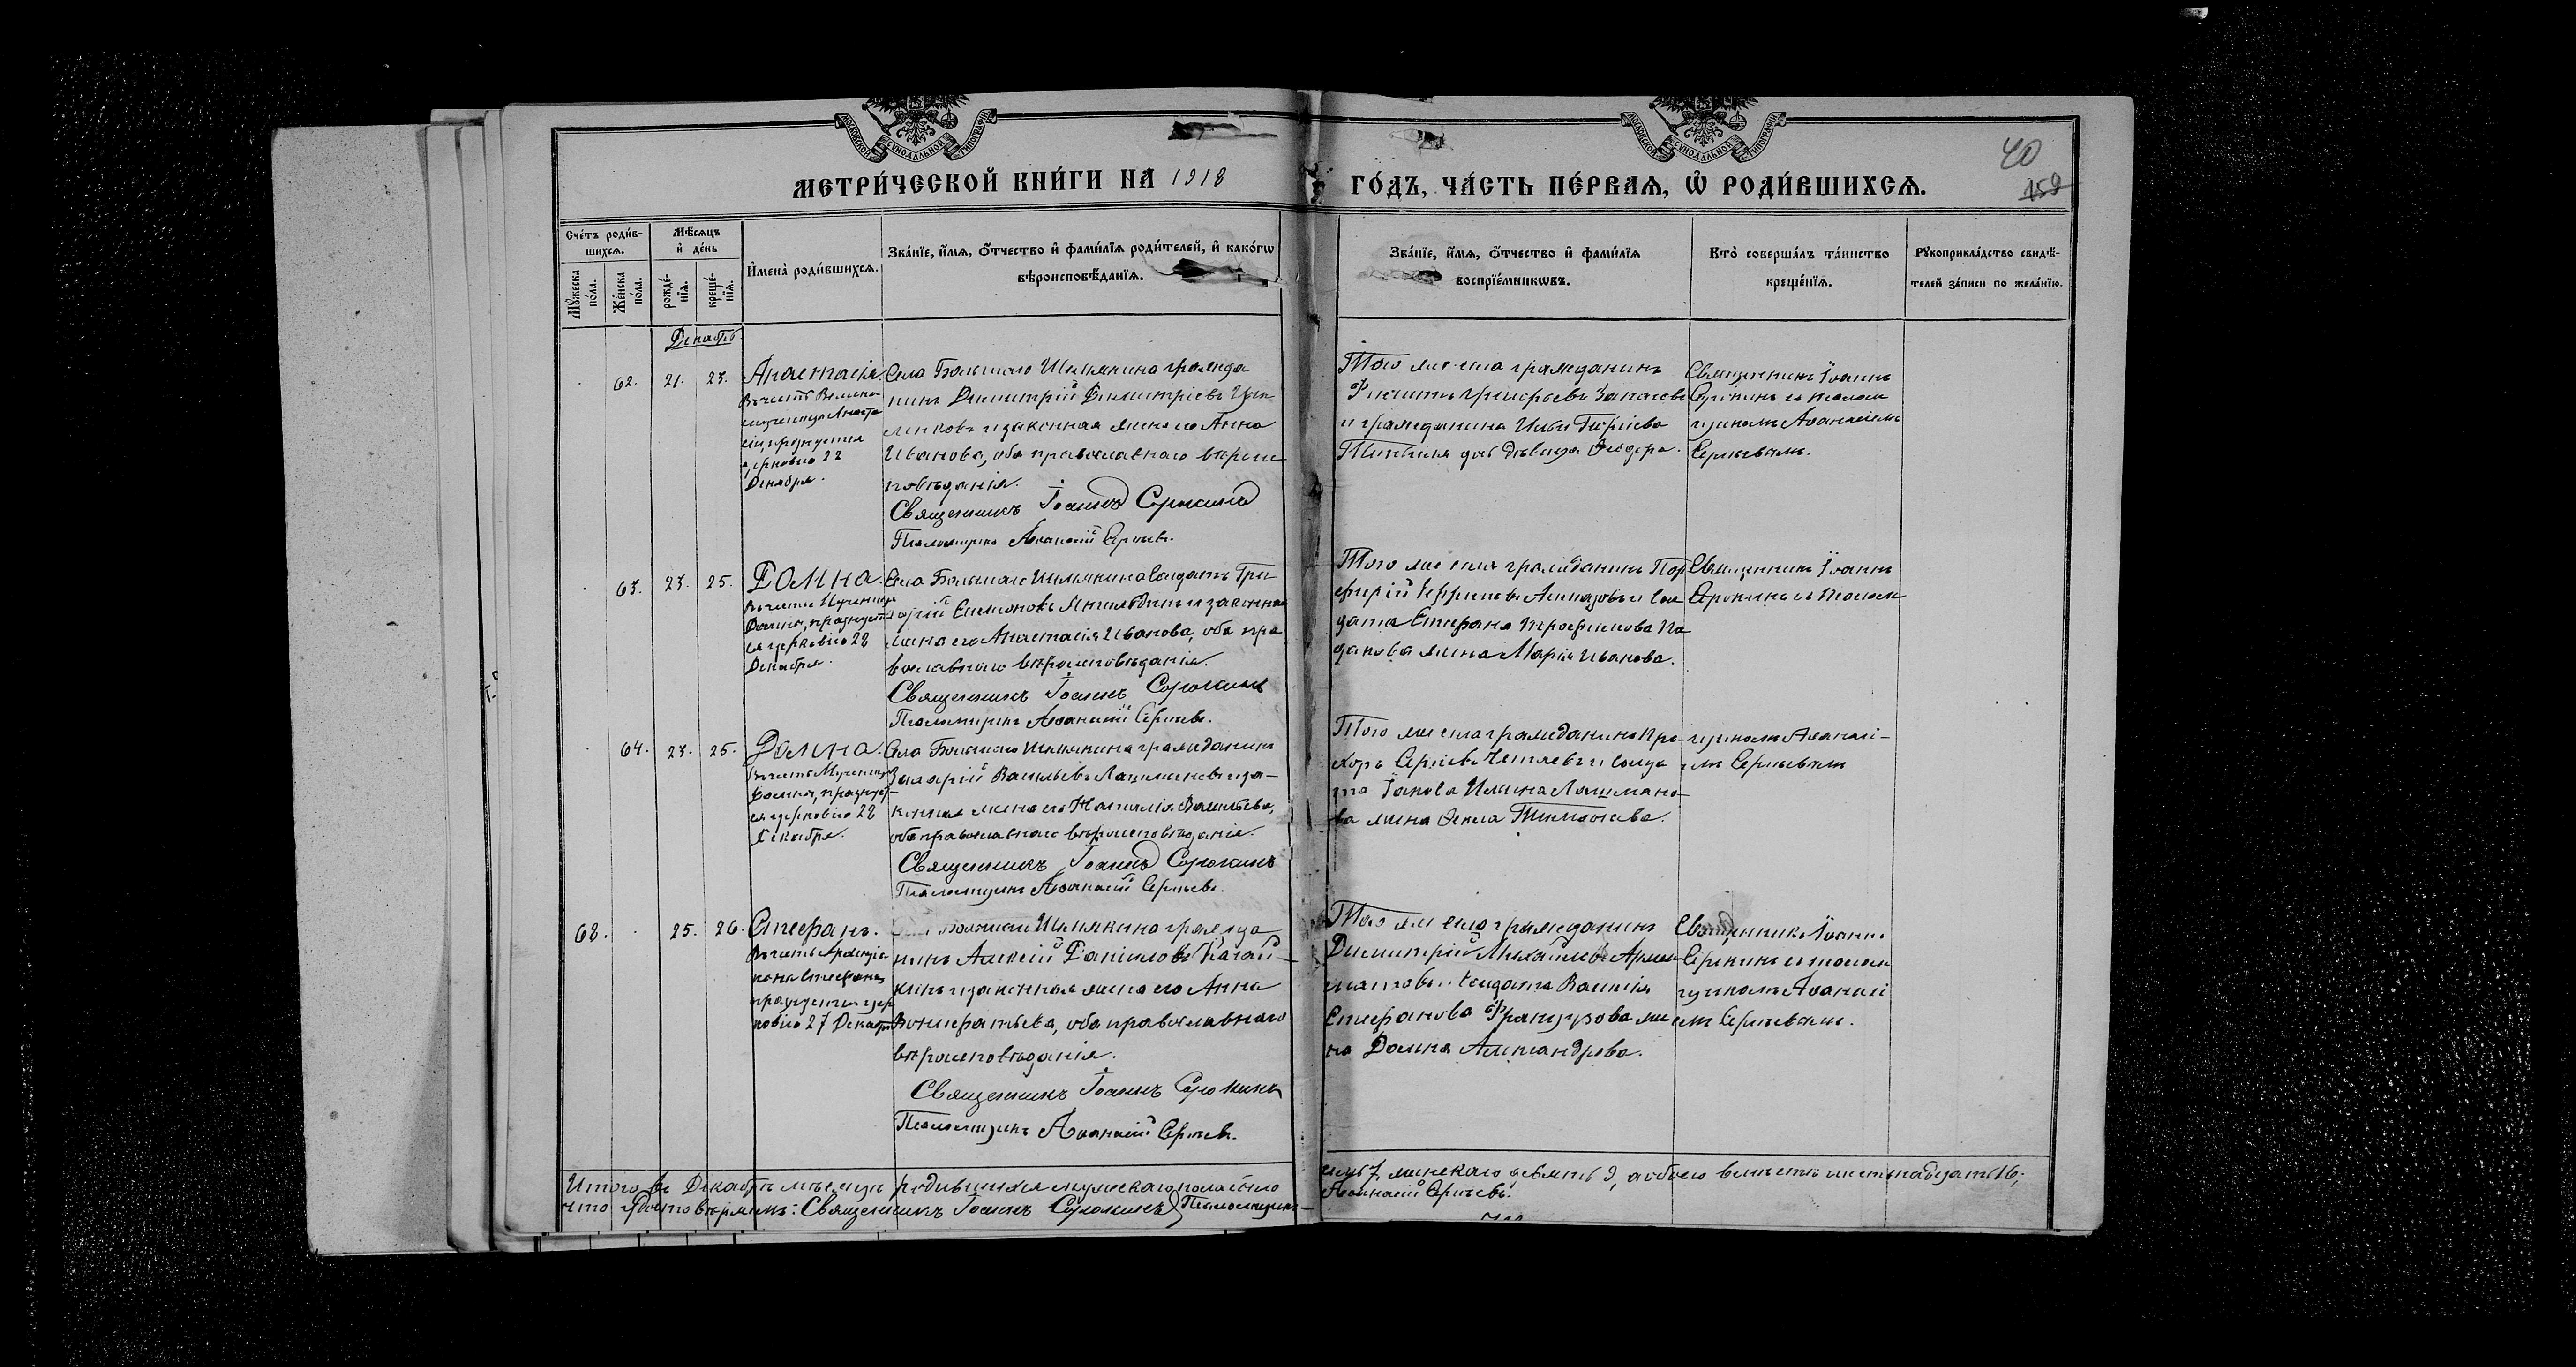 МОСКОВСКОЙ СУНОДАЛЬНОЙ ТИПОГРАФІИ
МОСКОВСКОЙ СУНОДАЛЬНОЙ ТИПОГРАФІИ
40
159
МЕТРИ́ЧЕСКОЙ КНИ́ГИ НА 1918
ГО́ДЪ, ЧА́СТЬ ПЕ́РВАѦ, Ѡ҆ РОДИ́ВШИХСѦ.
Сче́тъ роди́в-
шихсѧ.
Мꙋ́жеска по́ла.
Же́нска по́ла.
Мѣ́сѧцъ
и҆ де́нь
рожде́-
нїѧ.
креще́-
нїѧ.
И҆мена̀ роди́вшихсѧ.
Зва́нїе, и҆́мѧ, ѻ҆́тчество и҆ фами́лїѧ роди́телей, и҆ како́гѡ
вѣроисповѣ́данїѧ.
Зва́нїе, и҆́мѧ, ѻ҆́тчество и҆ фами́лїѧ
воспрїе́мникѡвъ.
Кто̀ соверша́лъ та́инство
креще́нїѧ.
Рꙋкоприкла́дство свидѣ́-
телей за́писи по жела́нїю.
Декабрь
62. 21. 23. Анастасія.
Въ честь Велико-
мученицы Анаста
сіи, празднуется
церковію 22
Декабря.
Села Большаго Шемякина гражда
нинъ Димитрій Димитріевъ
и законная жена его Анна
Иванова, оба православнаго вѣроис-
повѣданія.
Священникъ Іоаннъ Сорокинъ
Псаломщикъ Аѳанасій Сергѣевъ.
Того же села гражданинъ
Григорьевъ
и гражданина Ильи
дѣвица Ѳеодора.
Священникъ Іоаннъ
Сорокинъ съ псалом
щикомъ Аѳанасіемъ
Сергѣевымъ.
63. 23. 25. Домна.
Въ честь Мученицы
Домны, празднует
ся церковію 28
Декабря.
Села Большаго Шемякина солдатъ Гри
горій Симоновъ и законная
жена его Анастасія Иванова, оба пра
вославнаго вѣроисповѣданія.
Священникъ Іоаннъ Сорокинъ
Псаломщикъ Аѳанасій Сергѣевъ.
Того же села гражданинъ Пор
фирій и сол
дата Стефана Трофимова Ка
данова жена Марія Иванова.
Священникъ Іоаннъ
Сорокинъ съ псалом
64. 23. 25. Домна.
Въ честь Мученицы
Домны, празднует-
ся церковію 28
Декабря.
Села Большаго Шемякина гражданинъ
Васильевъ Лашмановъ и за-
конная жена его Наталія Васильева,
оба православнаго вѣроисповѣданія.
Священникъ Іоаннъ Сорокинъ
Псаломщикъ Аѳанасій Сергѣевъ.
Того же села гражданинъ Про-
хоръ Сергѣевъ и солда
та Іакова Ильина Лашмано-
ва жена Тимоѳеева.
щикомъ Аѳанасі-
емъ Сергѣевымъ
68. 25. 26. Стефанъ.
Въ честь Архидіа
кона Стефана,
празднуется цер
ковію 27 Декабря
Большаго Шемякина гражда
нинъ Алексій Даніиловъ
и законная жена его Анна
Вонифатьева, оба православнаго
вѣроисповѣданія.
Священникъ Іоаннъ Сорокинъ
Псаломщикъ Аѳанасій Сергѣевъ.
Того же села гражданинъ
Димитрій Михайловъ
и солдата Василія
Стефанова Французова же
на Домна Александрова.
Священникъ Іоаннъ
Сорокинъ съ псалом
щикомъ Аѳанасі
емъ Сергѣевымъ.
Итого въ Декабрѣ мѣсяцѣ родившихся мужескаго пола было
семь 7, женскаго девять 9, а обоего вмѣстѣ шестьнадцать 16;
что удостовѣряемъ: Священникъ Іоаннъ Сорокинъ Псаломщикъ
Аѳанасій Сергѣевъ.